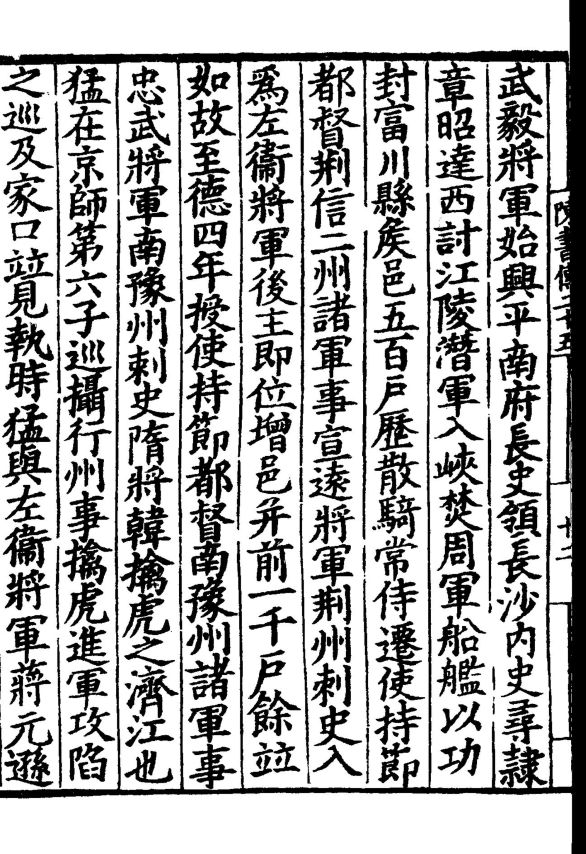 武毅將軍始興平南府長史領長沙內史尋隷
章昭達西討江陵潛軍入峽焚周軍船艦以功
封富川縣矦邑五百戶歷散騎常侍遷使持節
都督荆信二州諸軍事宣遠將軍荆州刺史入
爲左衞將軍後主即位增邑并前一千戶餘竝
如故至德四年授使持節都督南豫州諸軍事
忠武將軍南豫州刺史隋將韓擒虎之濟江也
猛在京師第六子巡攝行州事擒虎進軍攻陷
之巡及家口竝見執時猛與左衞將軍蔣元遜